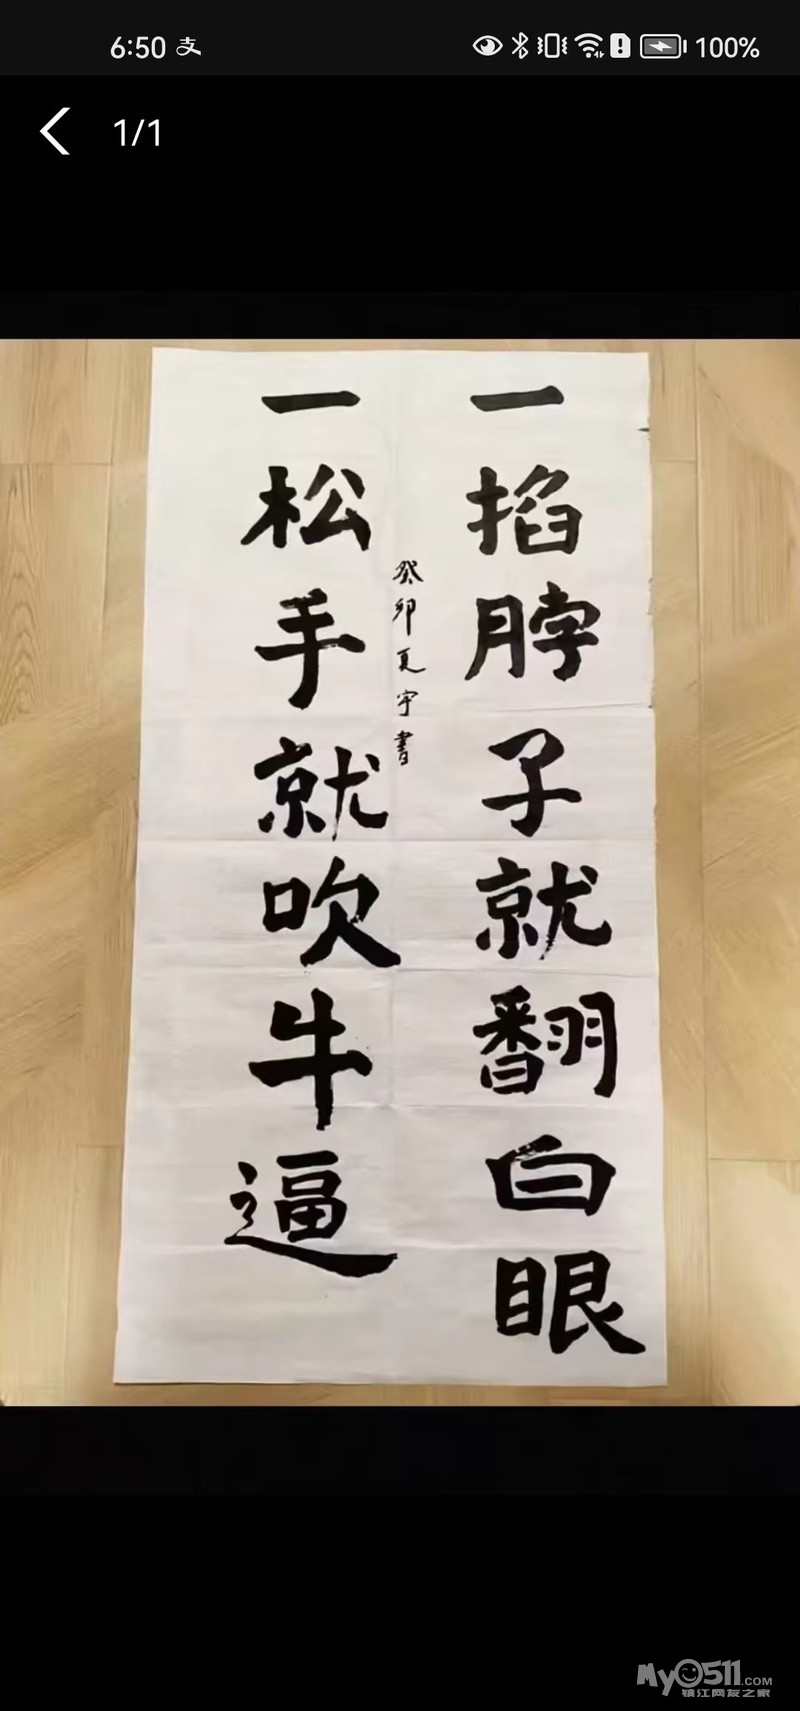 6:50 支
100%
1/1
一掐脖子就翻白眼
一松手就吹牛逼
癸卯夏宇書
My0511.COM
镇江网友之家